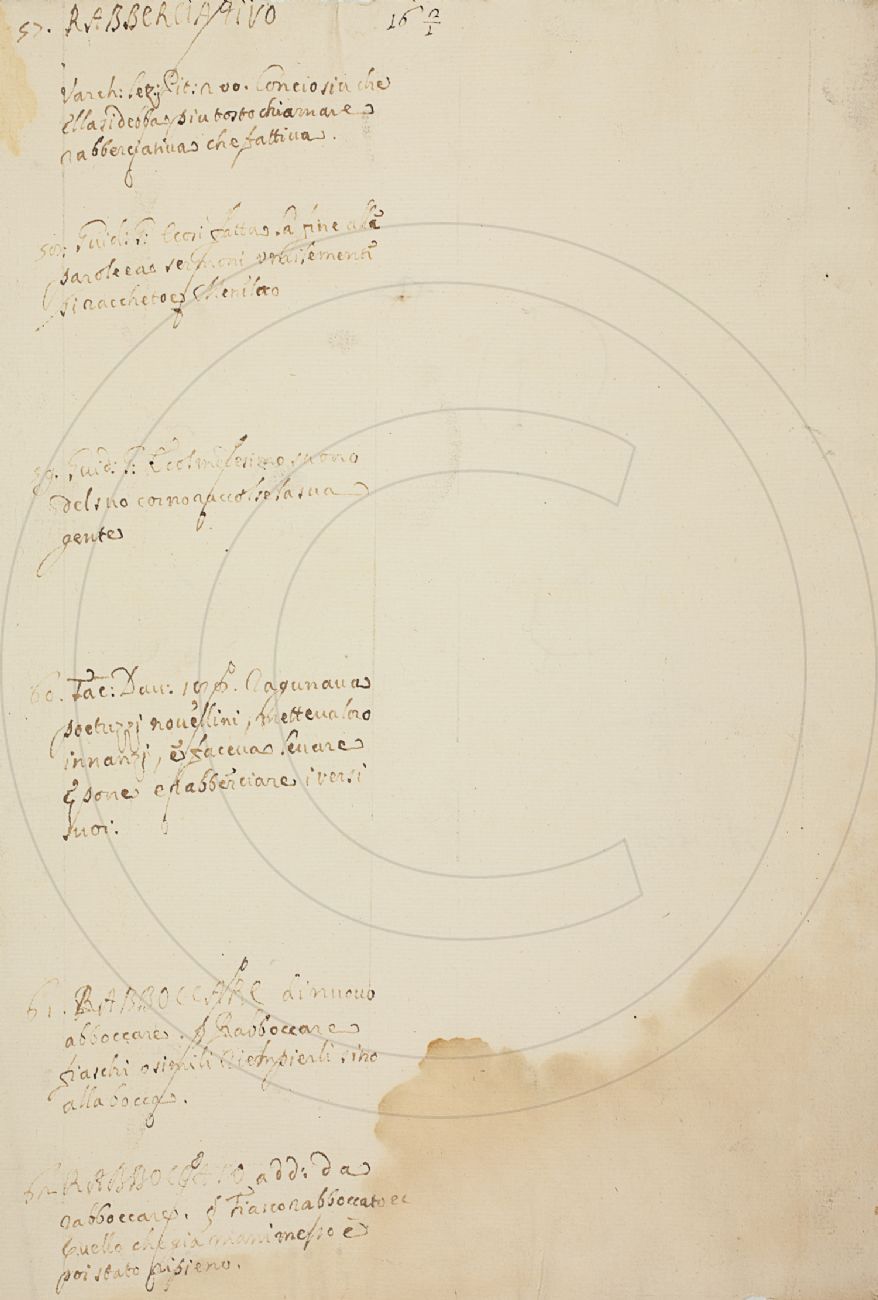 57. RABBERCIATIVO 16 2/1
Varch: lez: Pit: 200. Conciosia che
Ella si debba piu tosto chiamare
rabberciativa che fattiva.
58. Guid: G: E cosi fatta fine alle
parole e a sermoni
si racchetoe Menelao
59. Guid: G: E col suono
del suo corno raccolse la sua
gente
60. Tac: Dav: Ragunava
poetuzzi novellini, mettevaloro
innanzi, e faceva levare
e porre e rabberciare i versi
suoi.
61. RABBOCCARE di nuovo
abboccare. § Rabboccare
fiaschi o simili riempierli sino
alla bocca.
62 RABBOCCATO add: da
rabboccare. § Fiasco rabboccato e
quello che gia manimesso è
poi stato ripieno.